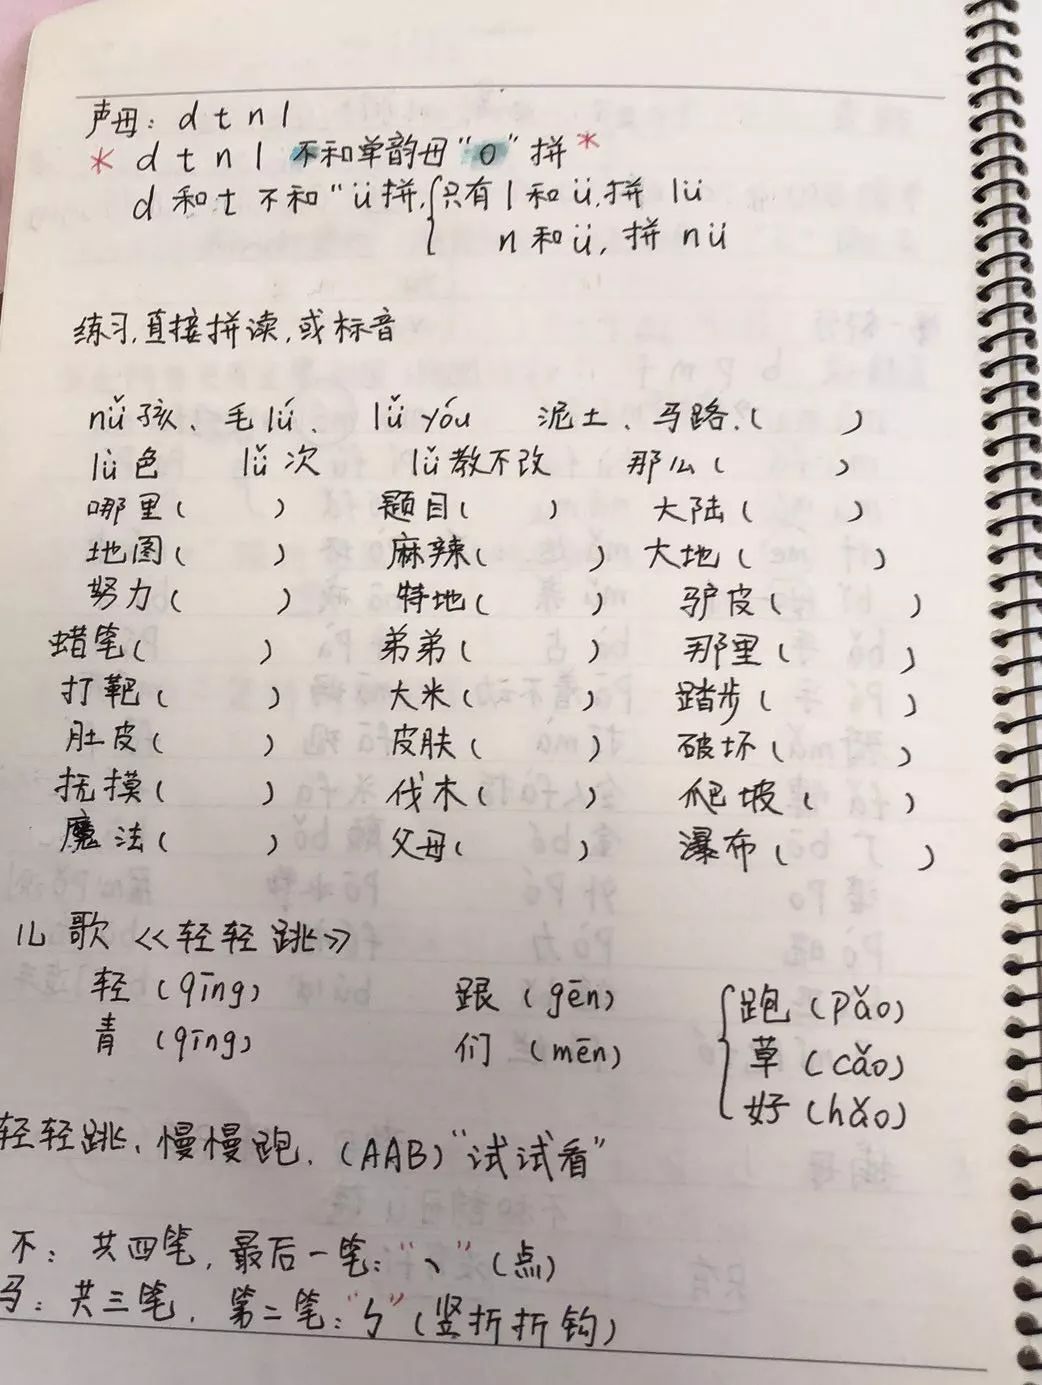 声母：d t n l
* d t n l 不和单韵母“o”拼 *
d 和 t 不和“ü拼,{只有 l 和 ü,拼 lü
n 和 ü, 拼 nü
练习,直接拼读,或标音
nǚ孩、毛lǘ、 lǚ yóu 泥土、马路、( )
lǜ色 lǚ次 lǚ教不改 那么( )
哪里( ) 题目( ) 大陆( )
地图( ) 麻辣( ) 大地( )
努力( ) 特地( ) 驴皮( )
蜡笔( ) 弟弟( ) 那里( )
打靶( ) 大米( ) 踏步( )
肚皮( ) 皮肤( ) 破坏( )
抚摸( ) 伐木( ) 爬坡( )
魔法( ) 父母( ) 瀑布( )
儿歌《轻轻跳》
轻(qīng) 跟(gēn) {跑(pǎo)
青(qīng) 们(mēn) 草(cǎo)
好(hǎo)
轻轻跳、慢慢跑、(AAB)“试试看”
不：共四笔,最后一笔：“丶”(点)
马：共三笔,第二笔：“ㄣ”(竖折折钩)